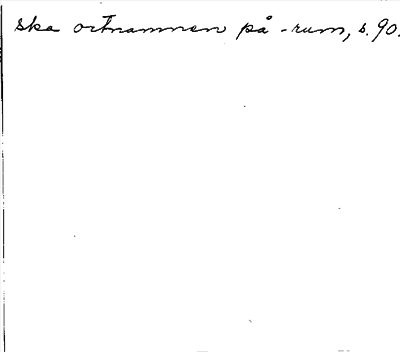 ska ortnamnen på -rum, s. 90.